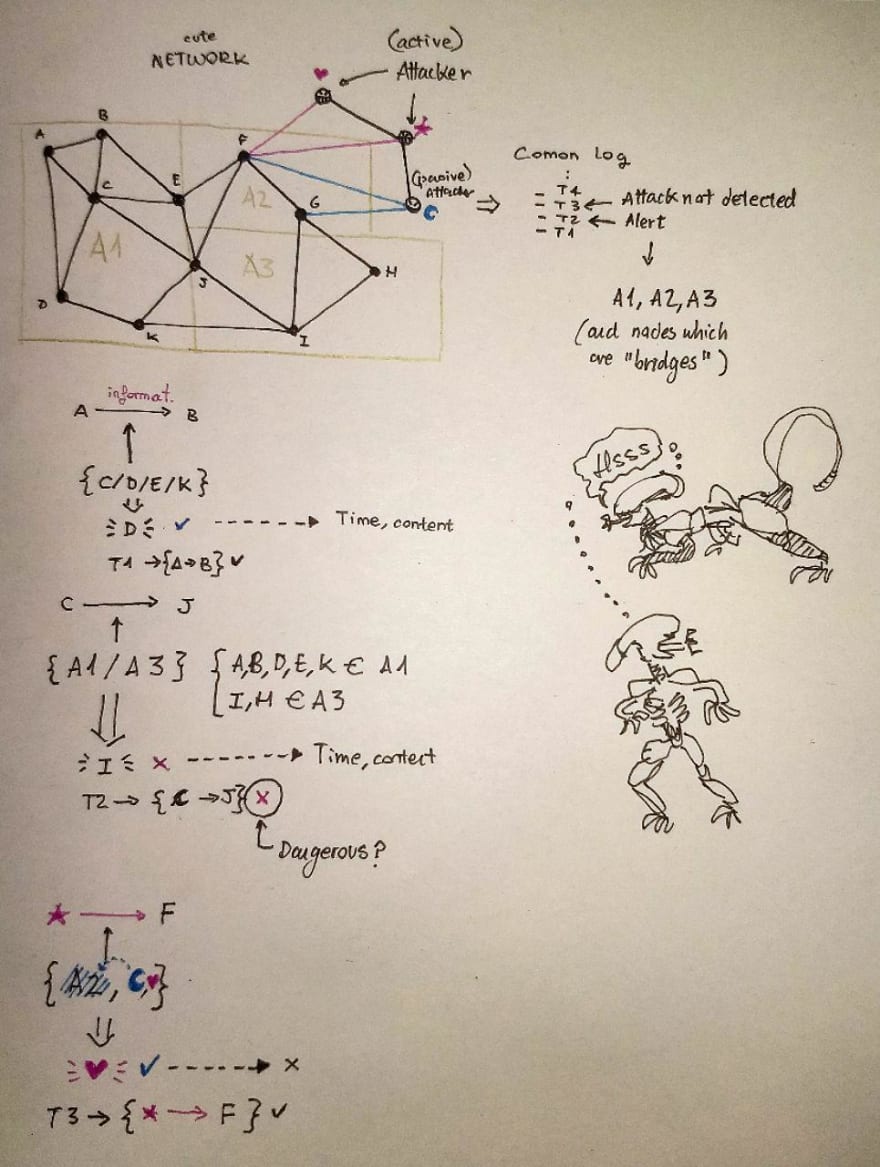 cute
NETWORK
(active)
Attacker
A
B
C
D
E
F
G
H
I
J
K
A1
A2
A3
(pasive)
Attacker
⇒
Comon Log
⋮
- T4
- T3 ← Attack not detected
- T2 ← Alert
- T1
↓
A1, A2, A3
(and nodes which
are "bridges")
informat.
A → B
↑
{C/D/E/K}
⇓
D ✓ ----→ Time, content
T1 → {A→B} ✓
C → J
↑
{A1/A3} { A,B,D,E,K ∈ A1
I, H ∈ A3
⇓
I × ----→ Time, content
T2 → {C → J} ×
Dangerous?
★ → F
↑
{A2, ☾, ♥}
⇓
♥ ✓ ----→ ×
T3 → {★ → F} ✓
Hsss